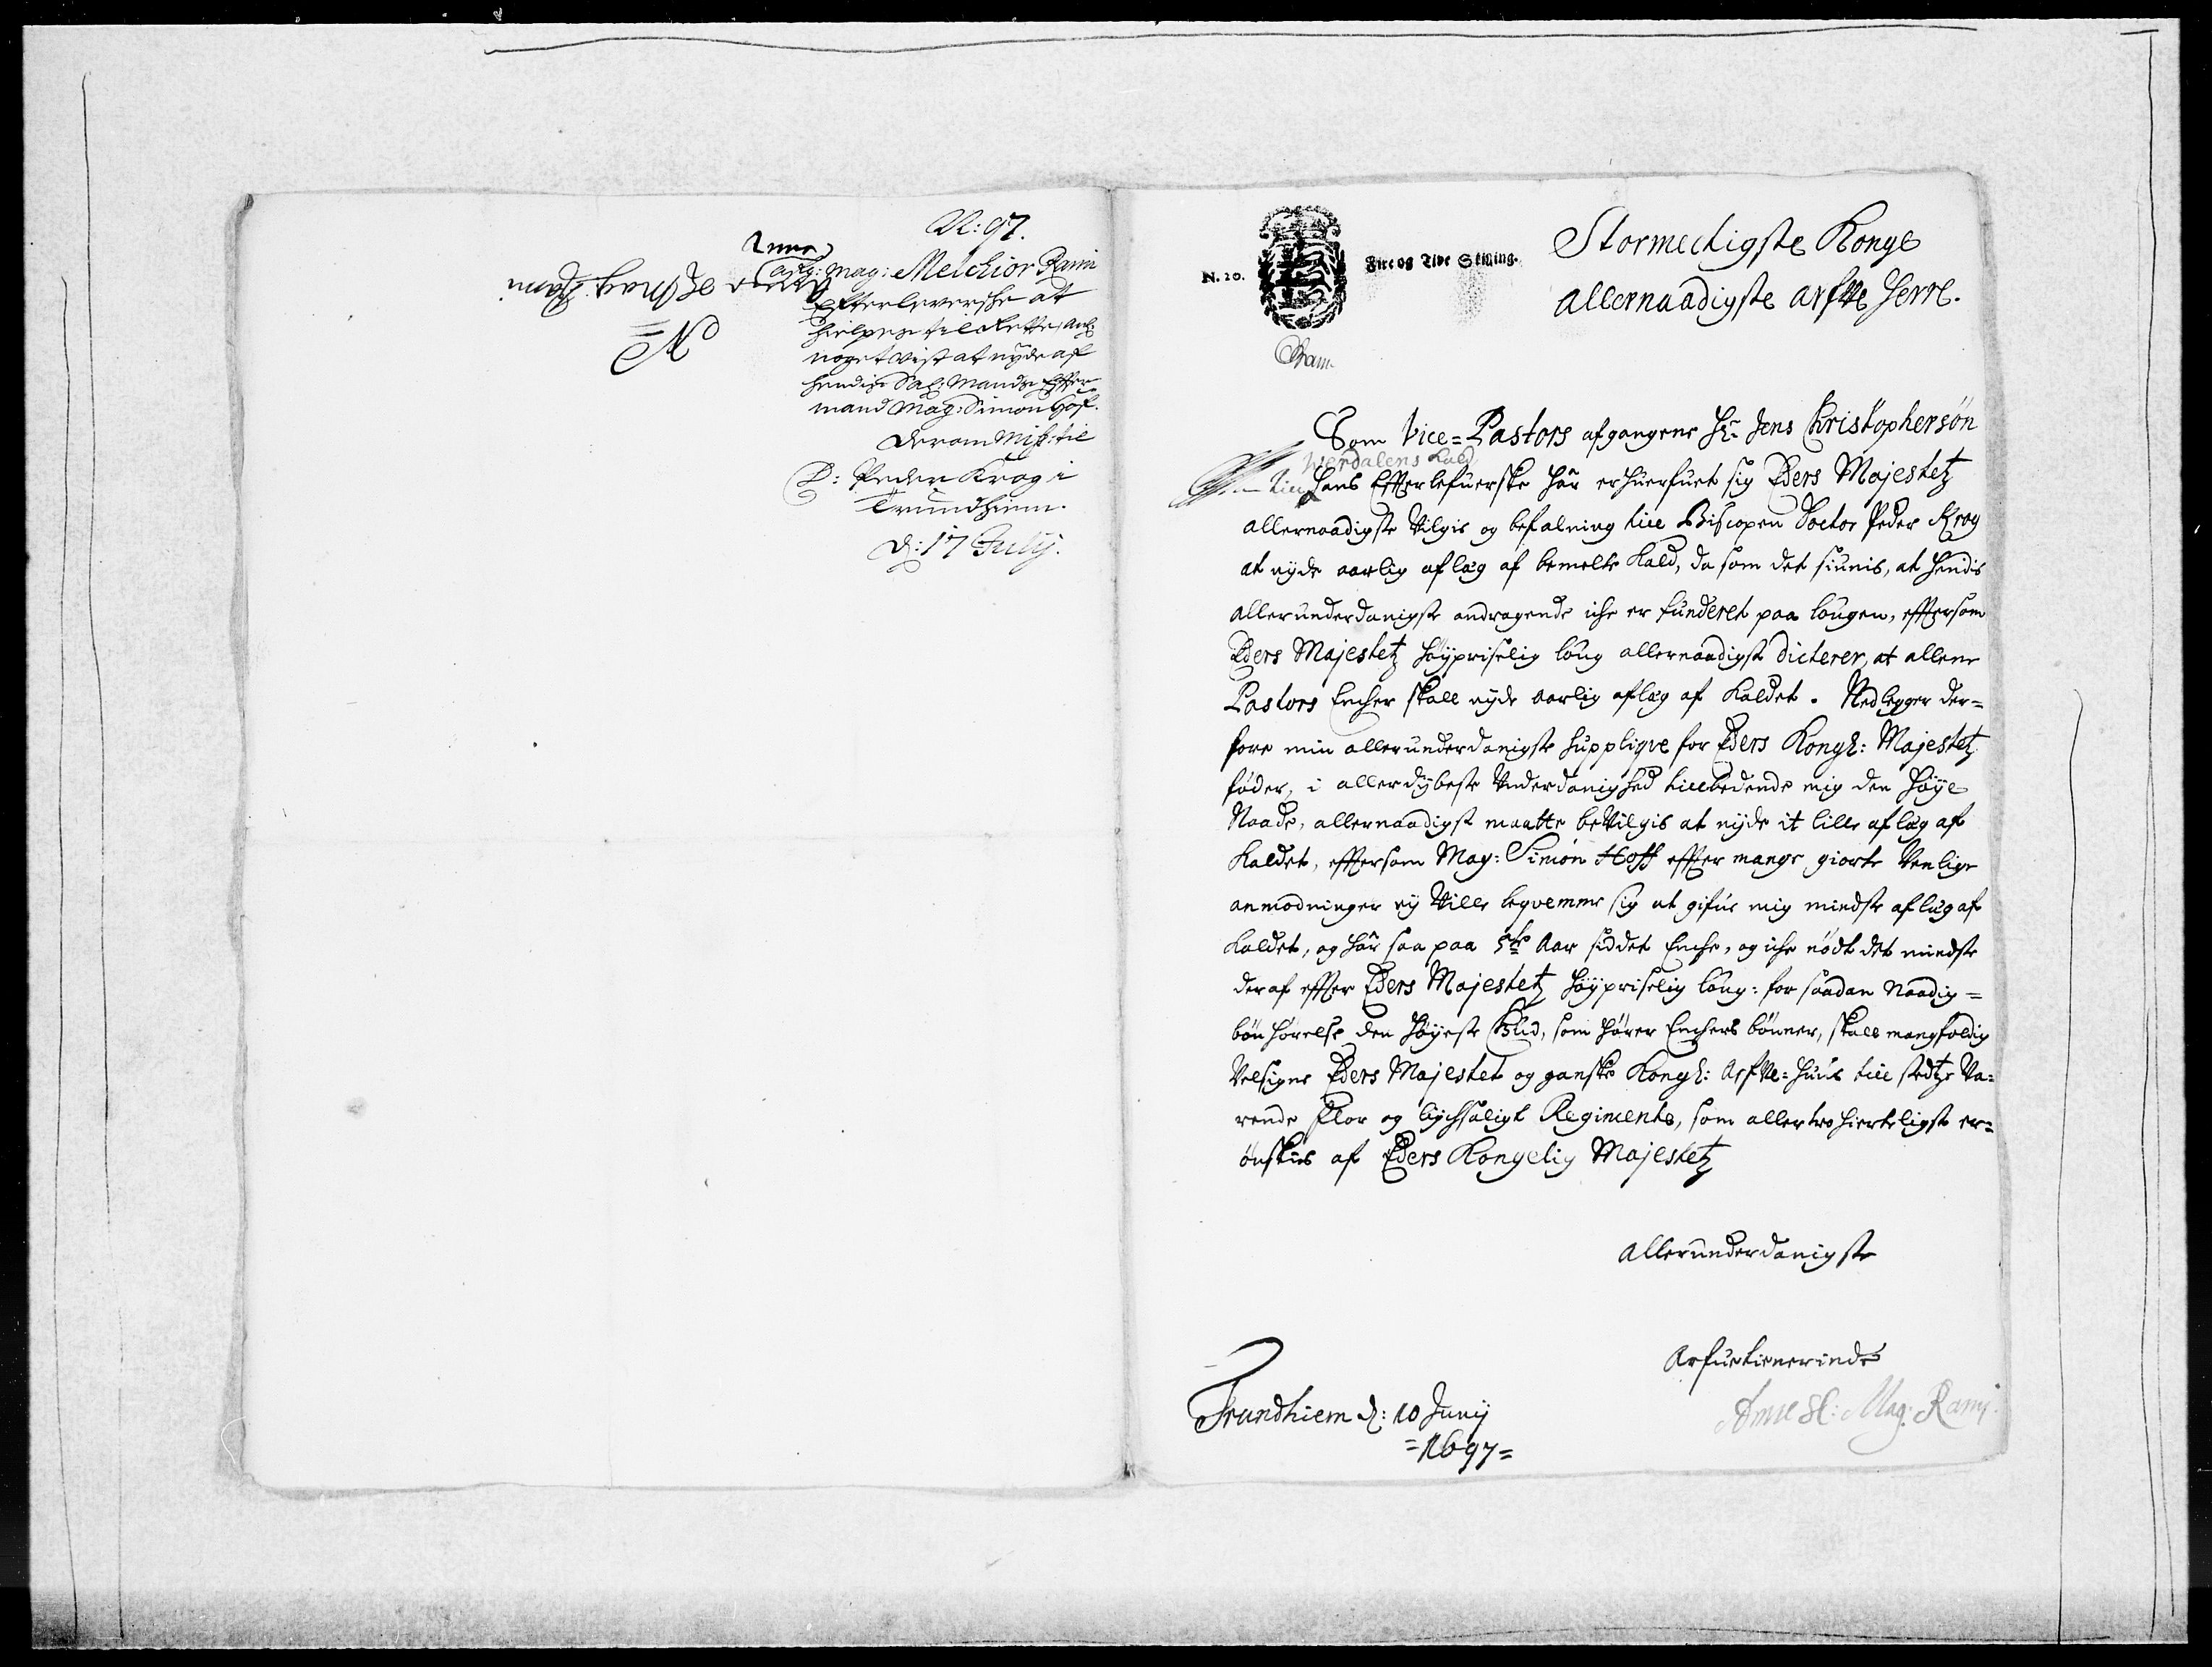 N: 97.
Anna
Sal: Mag: Melchior Rami
Efterlevershe at
hielpes til Rette, Anl:
noget vist at nyde af
hendis Sal: Mands Effter
mand Mag: Simon Hof.
Derom Miss: til
D: Peder Krog i
Trundhiem.
D: 17 July.
No
N. 20.
Fire og Tive Skilling.
Ram.
Stormectigste Konge
Allernaadigste Arfve Herre.
Som Vice=Pastors afgangene Hr. Jens Christophersøn
Werdalens Kald
till hans Effterlefuerske har erhuerfuet sig Eders Majestetz
allernaadigste Vilgie og befalning till Biscopen Doctor Peder Krog
at nyde aarlig aflag af bemelte Kald, da som det siunis, at hendis
allerunderdanigste andragende iche er funderet paa lougen, efftersom
Eders Majestetz høypriselig loug allernaadigst dicterer, at allene
Pastors Encher skall nyde aarlig aflag af Kaldet. Nedlegger der=
fore min allerunderdanigste supplique for Eders Kongl: Majestetz
føder, i allerdybeste Underdanighed tillbedende mig den høye
Naade, allernaadigst maatte bevilgis at nyde it lille aflag af
Kaldet, efftersom Mag: Simon Hoff effter mange giorte Venlige
anmodninger ey Ville beqvemme sig at gifue mig mindste aflag af
Kaldet, og har saa paa 5te Aar siddet Enche, og iche nødt det mindste
deraf effter Eders Majestetz høypriselig loug: for saadan Naadig=
bønhørelse den høyeste Gud, som hører Enchers bønner, skall mangfoldig
Velsigne Eders Majestet og ganske Kongl: Arfve=huus till stedtze Va=
rende flor og lychsaligt Regimente, som allertroehierteligst er=
ønskis af Eders Kongelig Majestetz
Allerunderdanigste
Arfuetienerinde
Anne Sl: Mag: Rami.
Trundhiem d: 10 Junij
=1697=